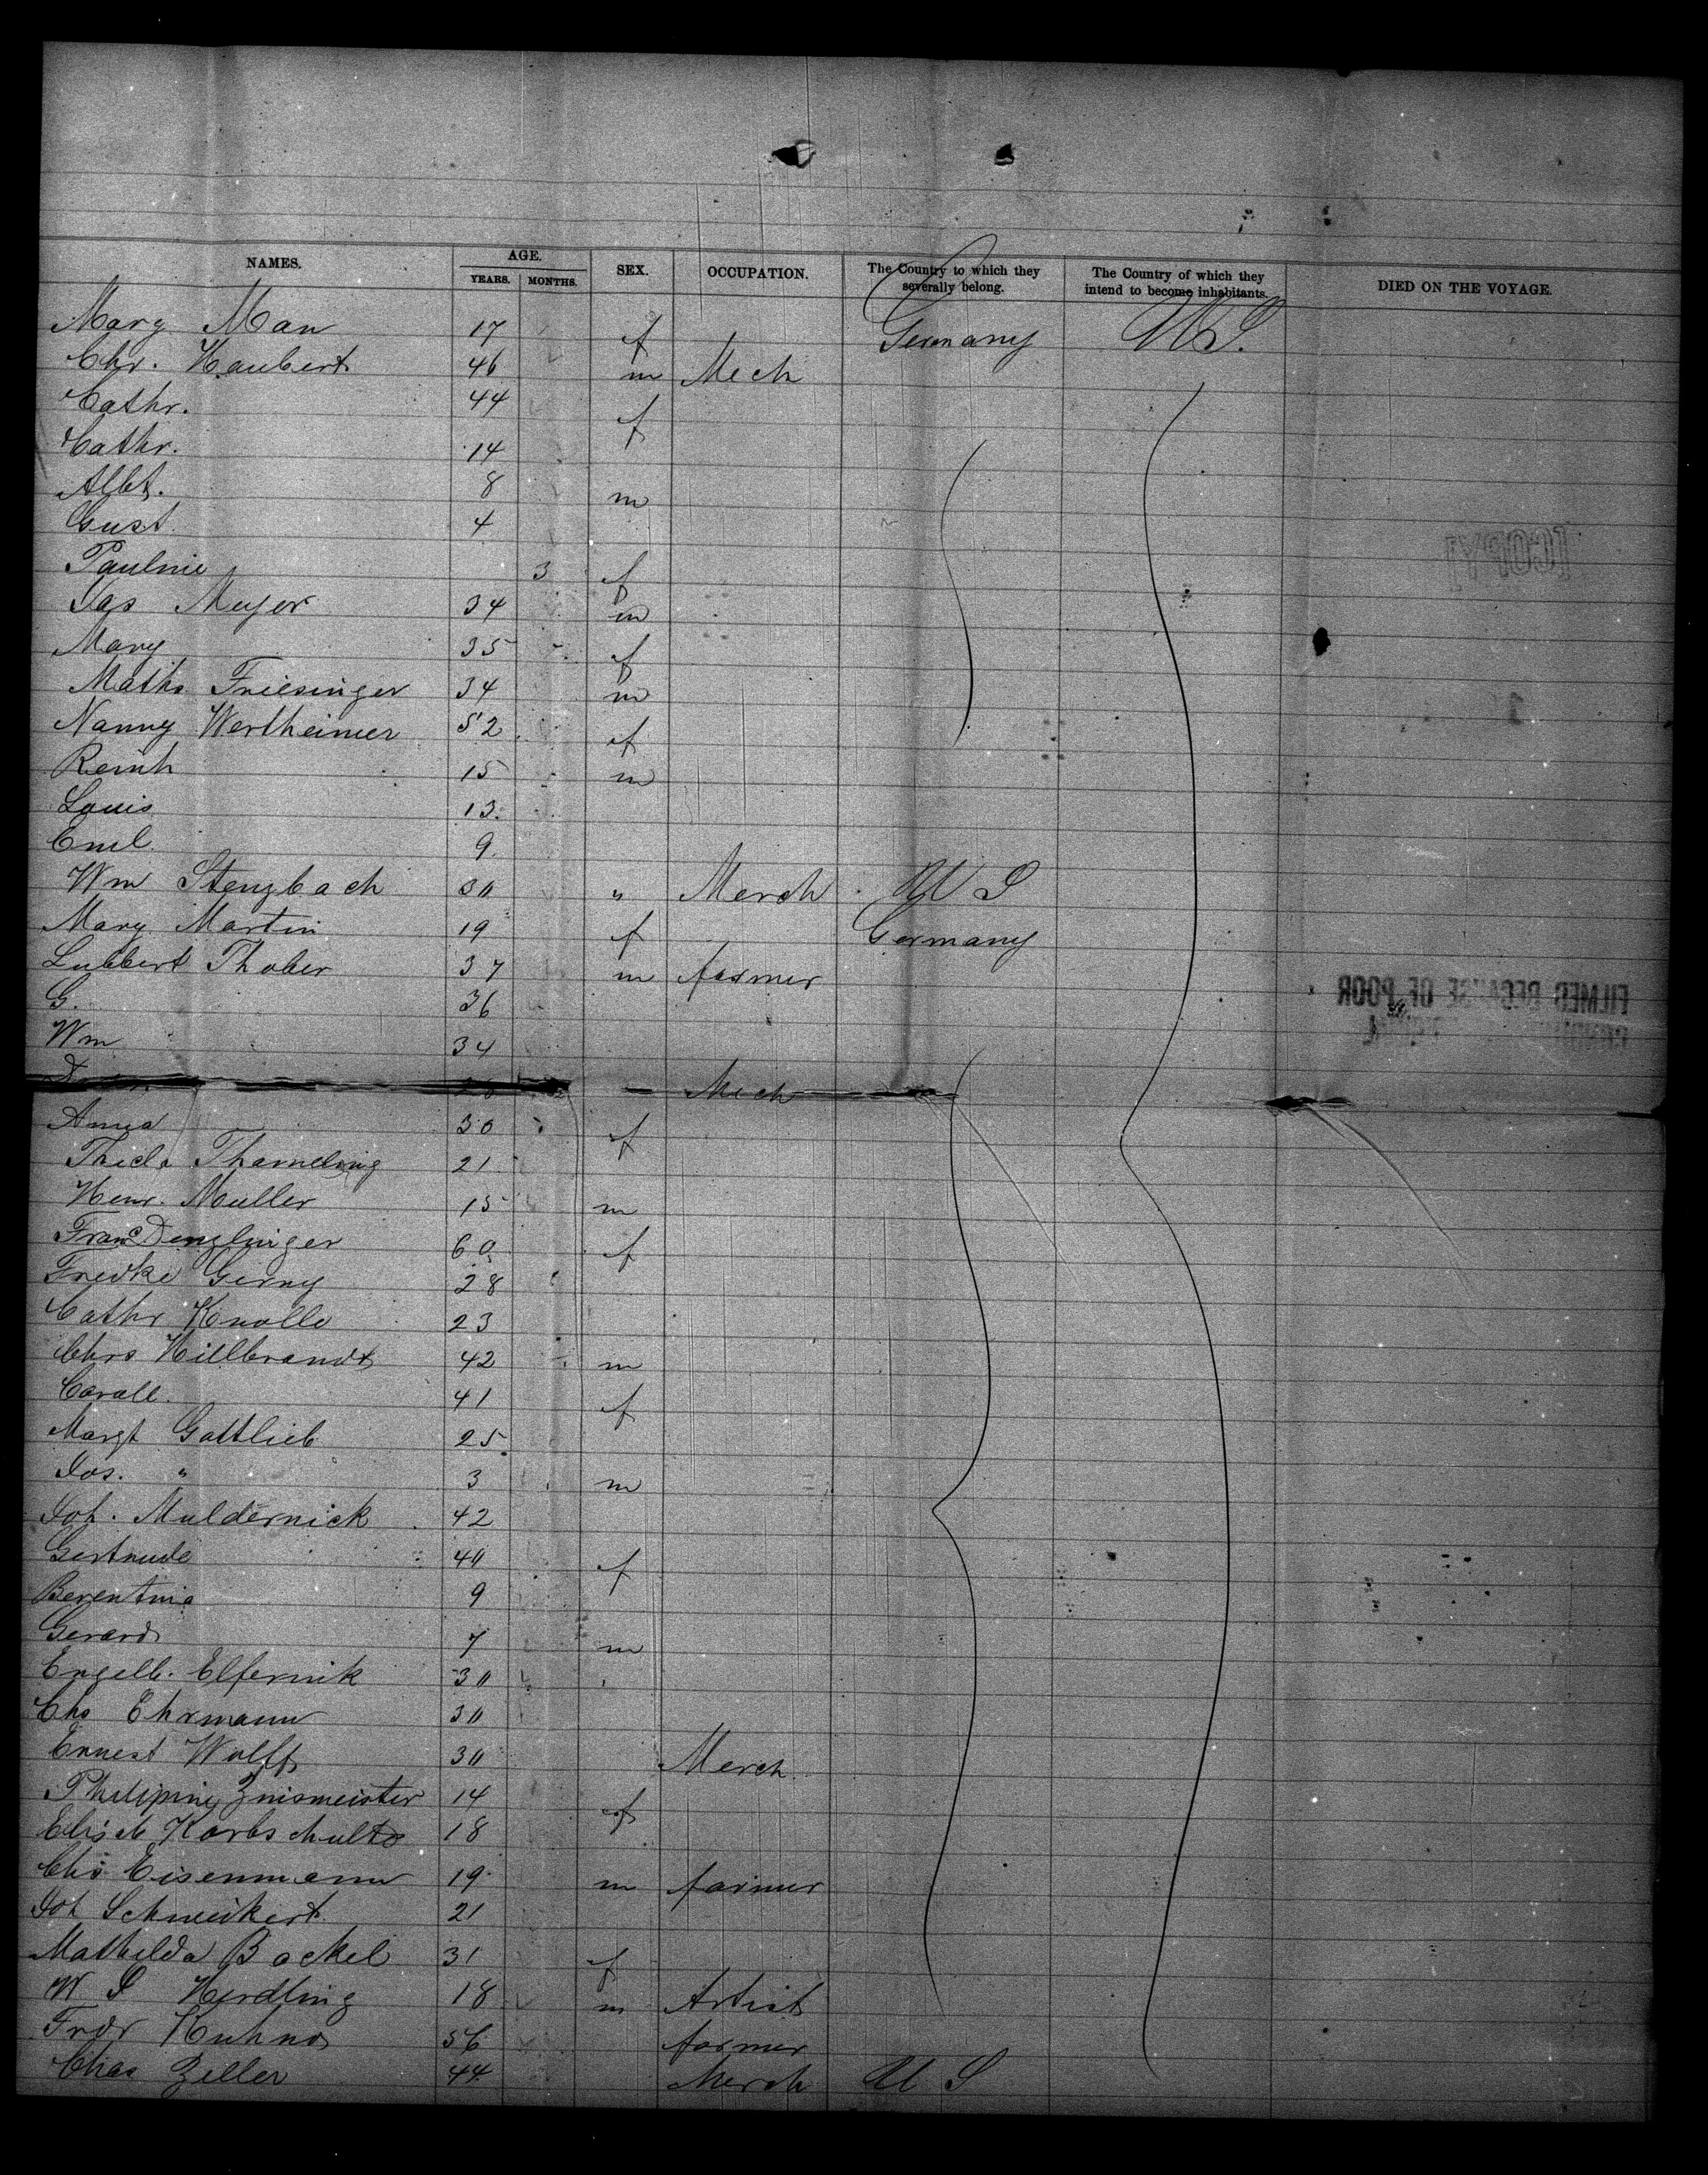 NAMES. AGE. YEARS. MONTHS. SEX. OCCUPATION. The Country to which they severally belong. The Country of which they intend to become inhabitants. DIED ON THE VOYAGE.
Mary Man 17 f Germany U.S.
Chr. Haubert 46 m Mech
Cathr. 44 f
Cathr. 14
Albt. 8 m
Gust. 4
Pauline 3 f
Jas Meyer 34 m
Mary 35 f
Maths Friesinger 34 m
Nanny Wertheimer 52 f
Reinh 15 m
Louis 13
Emil 9
Wm Stengbach 30 " Merch U S
Mary Martin 19 f Germany
Lubbert Thober 37 m farmer
G. 36
Wm 34
Mech
Anna 30 f
Theda 21
Henr. Muller 15 m
Franc Denglinger 60 f
Fredke Gerny 28
Cathr Knolle 23
Chrs Hillbrandt 42 m
Caroll. 41 f
Margt Gottlieb 25
Jos. " 3 m
Joh. Muldernick 42
Gertrude 40 f
Berentina 9
Gerard 7 m
Engelb. Elfernik 30
Chs Ehrmann 30
Ernest Wolff 30 Merch
Philipine Zinsmeister 14 f
Elisab Korbschults 18
Chs Eisenmann 19 m farmer
Joh Schweikert 21
Mathilda Bockel 31 f
W S Herdling 18 m Artist
Fredr Kuhno 56 farmer
Chas Zeller 44 Merch U S
[COPY]
FILMED BECAUSE OF POOR